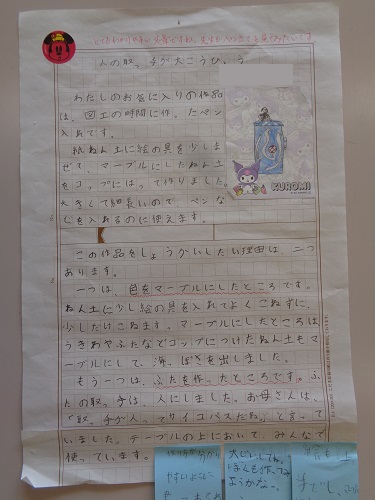 人の取っ手が大こうひ
わたしのお気に入りの作品
は、図工の時間に作ったペン
入れです。
紙ねん土に絵の具を少しま
ぜて、マーブルにしたねん土
をコップにはって作りました。
大きくて細長いので、ペンな
どを入れるのに使えます。
KUROMI
この作品をしょうかいしたい理由は、二つ
あります。
一つは、色をマーブルにしたところです。
ねん土に少し絵の具を入れてよくこねずに、
少しだけこねます。マーブルにしたところは、
うきわやふたなどコップにつけたねん土もマ
ーブルにして、海っぽさを出しました。
もう一つは、ふたを作ったところです。ふ
たの取っ手は、人にしました。お母さんは、
「取っ手が人ってサイコパスだね。」と言って
いました。テーブルの上において、みんなで
使っています。
ぼくも作ってみ
ようかな。